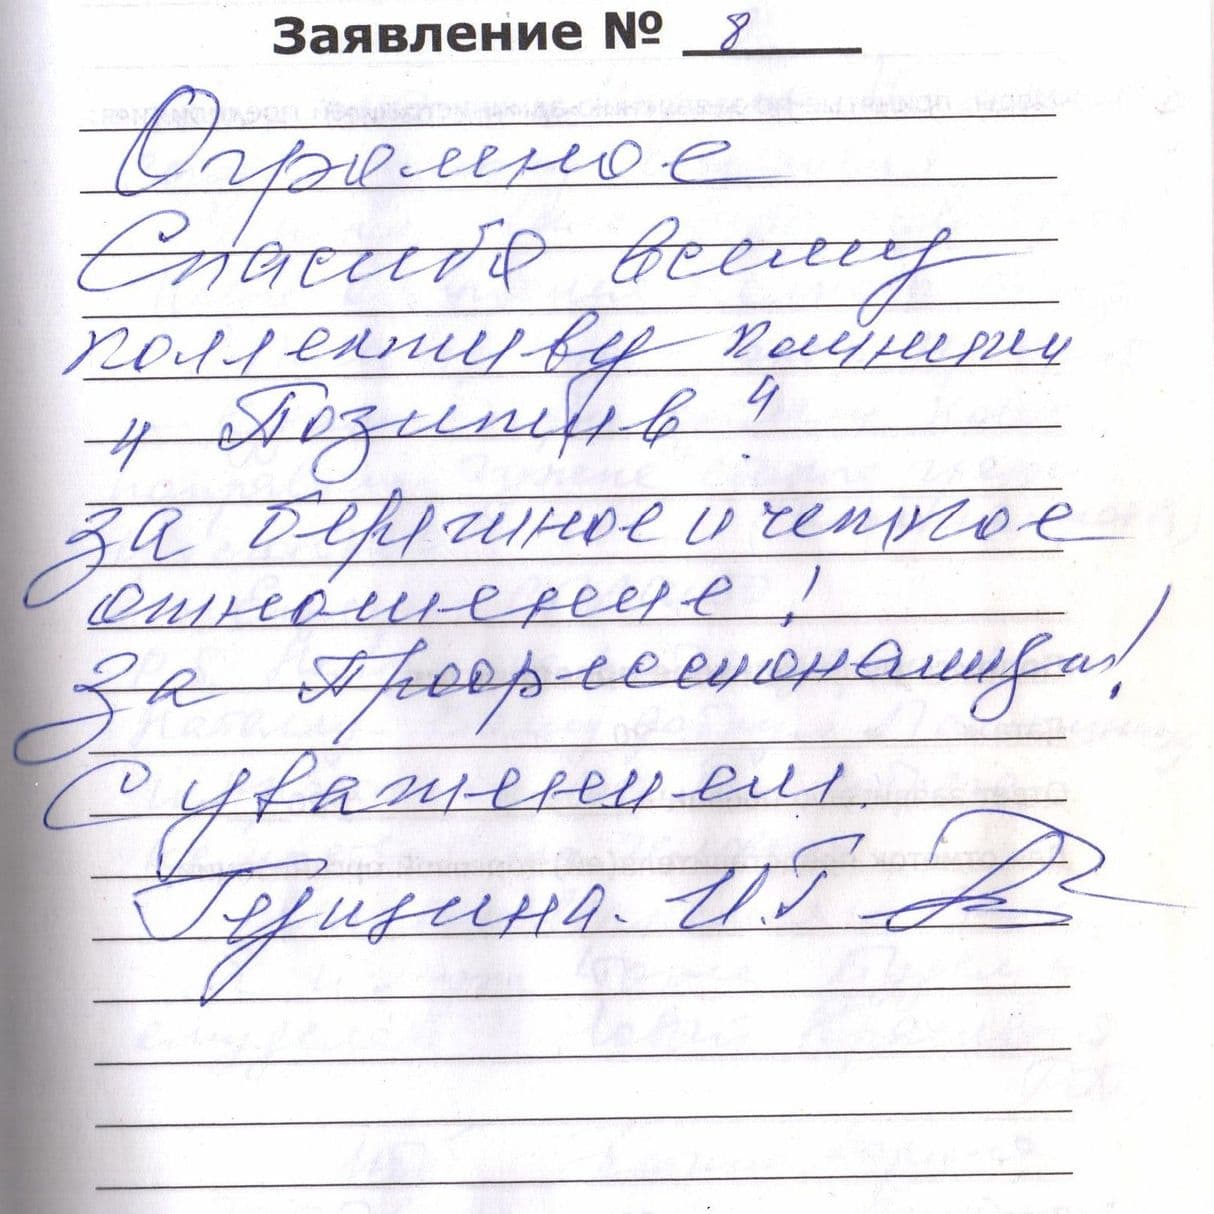 Заявление № 8
Огромное
Спасибо всему
коллективу клиники
"Позитив"
за бережное и четкое
отношение!
За Профессионализм!
С уважением.
И.Г.